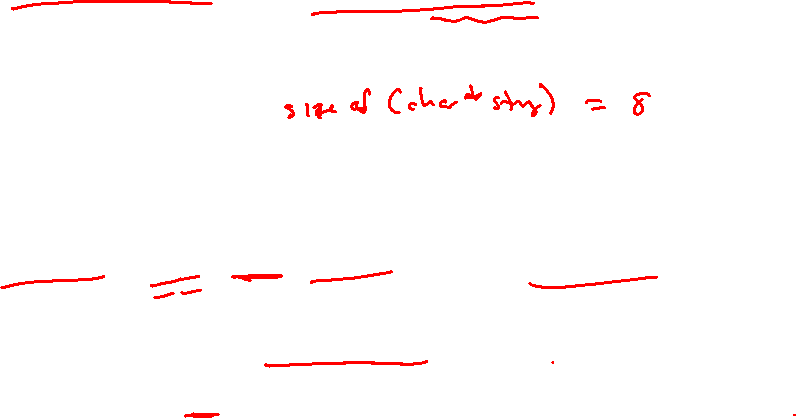 sizeof (char* string) = 8